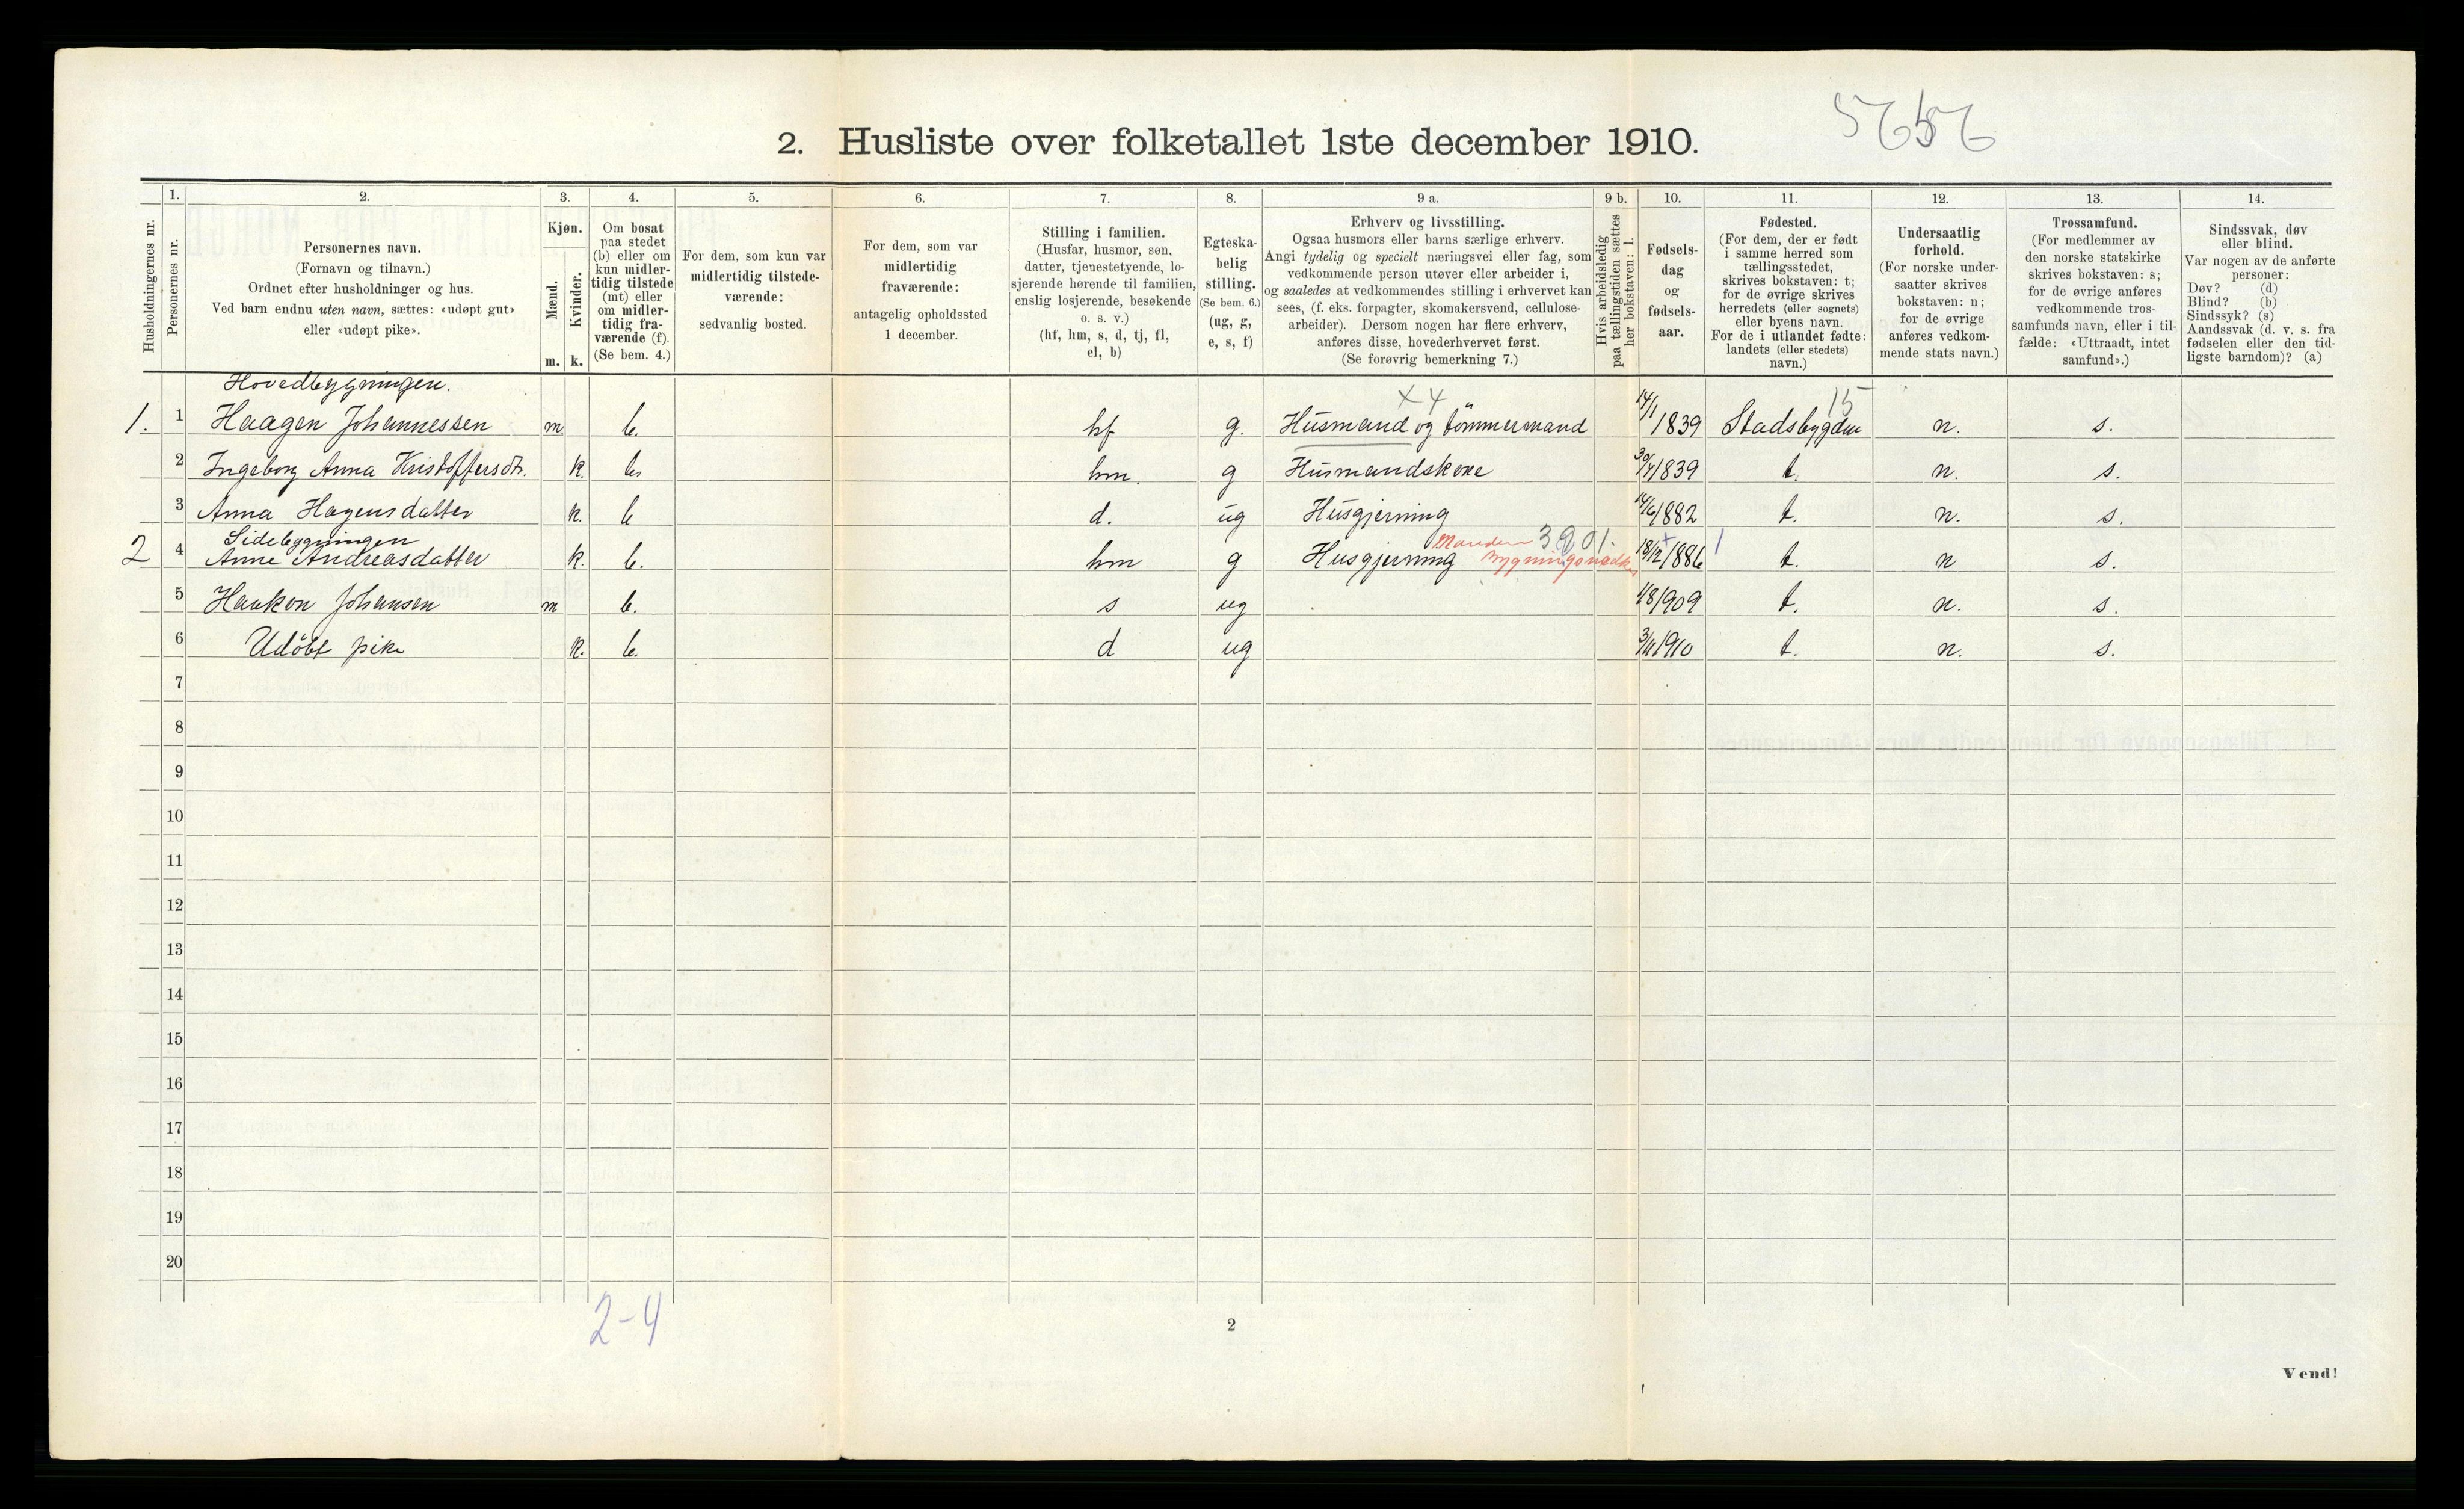 5656
2. Husliste over folketallet 1ste december 1910.
Husholdningernes nr.
1.
Personernes nr.
2.
Personernes navn.
(Fornavn og tilnavn.)
Ordnet efter husholdninger og hus.
Ved barn endnu uten navn, sættes: «udøpt gut»
eller «udøpt pike».
3.
Kjøn.
Mænd.
Kvinder.
m. k.
4.
Om bosat
paa stedet
(b) eller om
kun midler-
tidig tilstede
(mt) eller
om midler-
tidig fra-
værende (f).
(Se bem. 4.)
5.
For dem, som kun var
midlertidig tilstede-
værende:
sedvanlig bosted.
6.
For dem, som var
midlertidig
fraværende:
antagelig opholdssted
1 december.
7.
Stilling i familien.
(Husfar, husmor, søn,
datter, tjenestetyende, lo-
sjerende hørende til familien,
enslig losjerende, besøkende
o. s. v.)
(hf, hm, s, d, tj, fl,
el, b)
8.
Egteska-
belig
stilling.
(Se bem. 6.)
(ug, g,
e, s, f)
9 a.
Erhverv og livsstilling.
Ogsaa husmors eller barns særlige erhverv.
Angi tydelig og specielt næringsvei eller fag, som
vedkommende person utøver eller arbeider i,
og saaledes at vedkommendes stilling i erhvervet kan
sees, (f. eks. forpagter, skomakersvend, cellulose-
arbeider). Dersom nogen har flere erhverv,
anføres disse, hovederhvervet først.
(Se forøvrig bemerkning 7.)
9 b.
Hvis arbeidsledig
paa tællingstiden sættes
her bokstaven: l.
10.
Fødsels-
dag
og
fødsels-
aar.
11.
Fødested.
(For dem, der er født
i samme herred som
tællingsstedet,
skrives bokstaven: t;
for de øvrige skrives
herredets (eller sognets)
eller byens navn.
For de i utlandet fødte:
landets (eller stedets)
navn.)
12.
Undersaatlig
forhold.
(For norske under-
saatter skrives
bokstaven: n;
for de øvrige
anføres vedkom-
mende stats navn.)
13.
Trossamfund.
(For medlemmer av
den norske statskirke
skrives bokstaven: s;
for de øvrige anføres
vedkommende tros-
samfunds navn, eller i til-
fælde: «Uttraadt, intet
samfund».)
14.
Sindssvak, døv
eller blind.
Var nogen av de anførte
personer:
Døv? (d)
Blind? (b)
Sindssyk? (s)
Aandssvak (d. v. s. fra
fødselen eller den tid-
ligste barndom)? (a)
Hovedbygningen.
x4 15
1. 1 Haagen Johannessen m b. hf g. Husmand og tömmermand 14/1 1839 Stadsbygden n. s.
2 Ingeborg Anna Kristoffersdtr. k. b. hm. g Husmandskone 30/4 1839 t. n. s.
3 Anna Hagensdatter k. b d. ug Husgjerning 14/6 1882 t. n. s.
Sidebygningen Manden 3901.
2 4 Anne Andreasdatter k. b. hm g Husgjerning 18/12 1886 t. n s.
5 Haakon Johansen m b. s ug 1/8 1909 t. n. s.
6 Udöbt pike k. b. d ug 3/11 1910 t. n. s.
7
8
9
10
11
12
13
14
15
16
17
18
19
20
2-4
2
Vend!